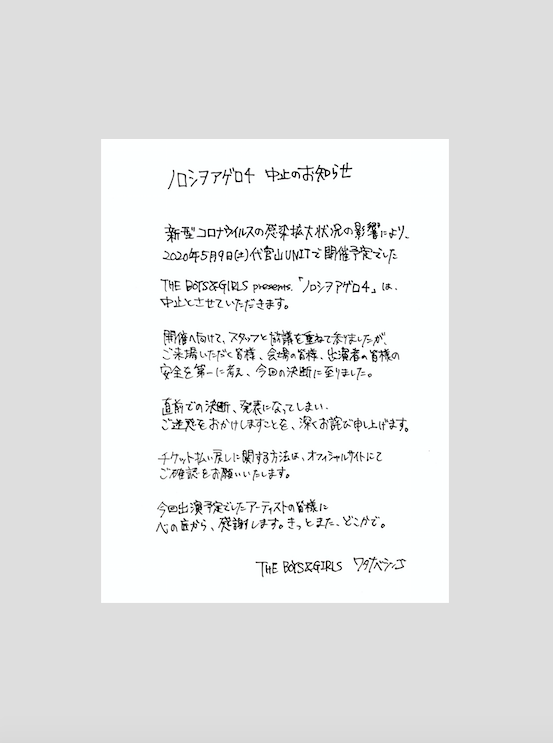 ノロシヲアゲロ4 中止のお知らせ
新型コロナウイルスの感染拡大状況の影響により、
2020年5月9日(土)代官山UNITで開催予定でした
THE BOYS&GIRLS presents.「ノロシヲアゲロ4」は、
中止とさせていただきます。
開催へ向けて、スタッフと協議を重ねて参りましたが、
ご来場いただく皆様、会場の皆様、出演者の皆様の
安全を第一に考え、今回の決断に至りました。
直前での決断、発表になってしまい、
ご迷惑をおかけしますことを、深くお詫び申し上げます。
チケット払い戻しに関する方法は、オフィシャルサイトにて
ご確認をお願いいたします。
今回出演予定でしたアーティストの皆様に
心の底から、感謝します。きっとまた、どこかで。
THE BOYS&GIRLS ワタナベシンゴ